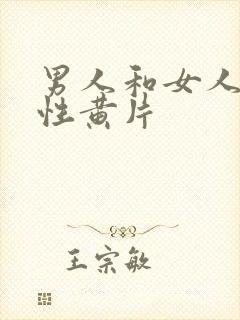 男人和女人
性黄片
王宗敏